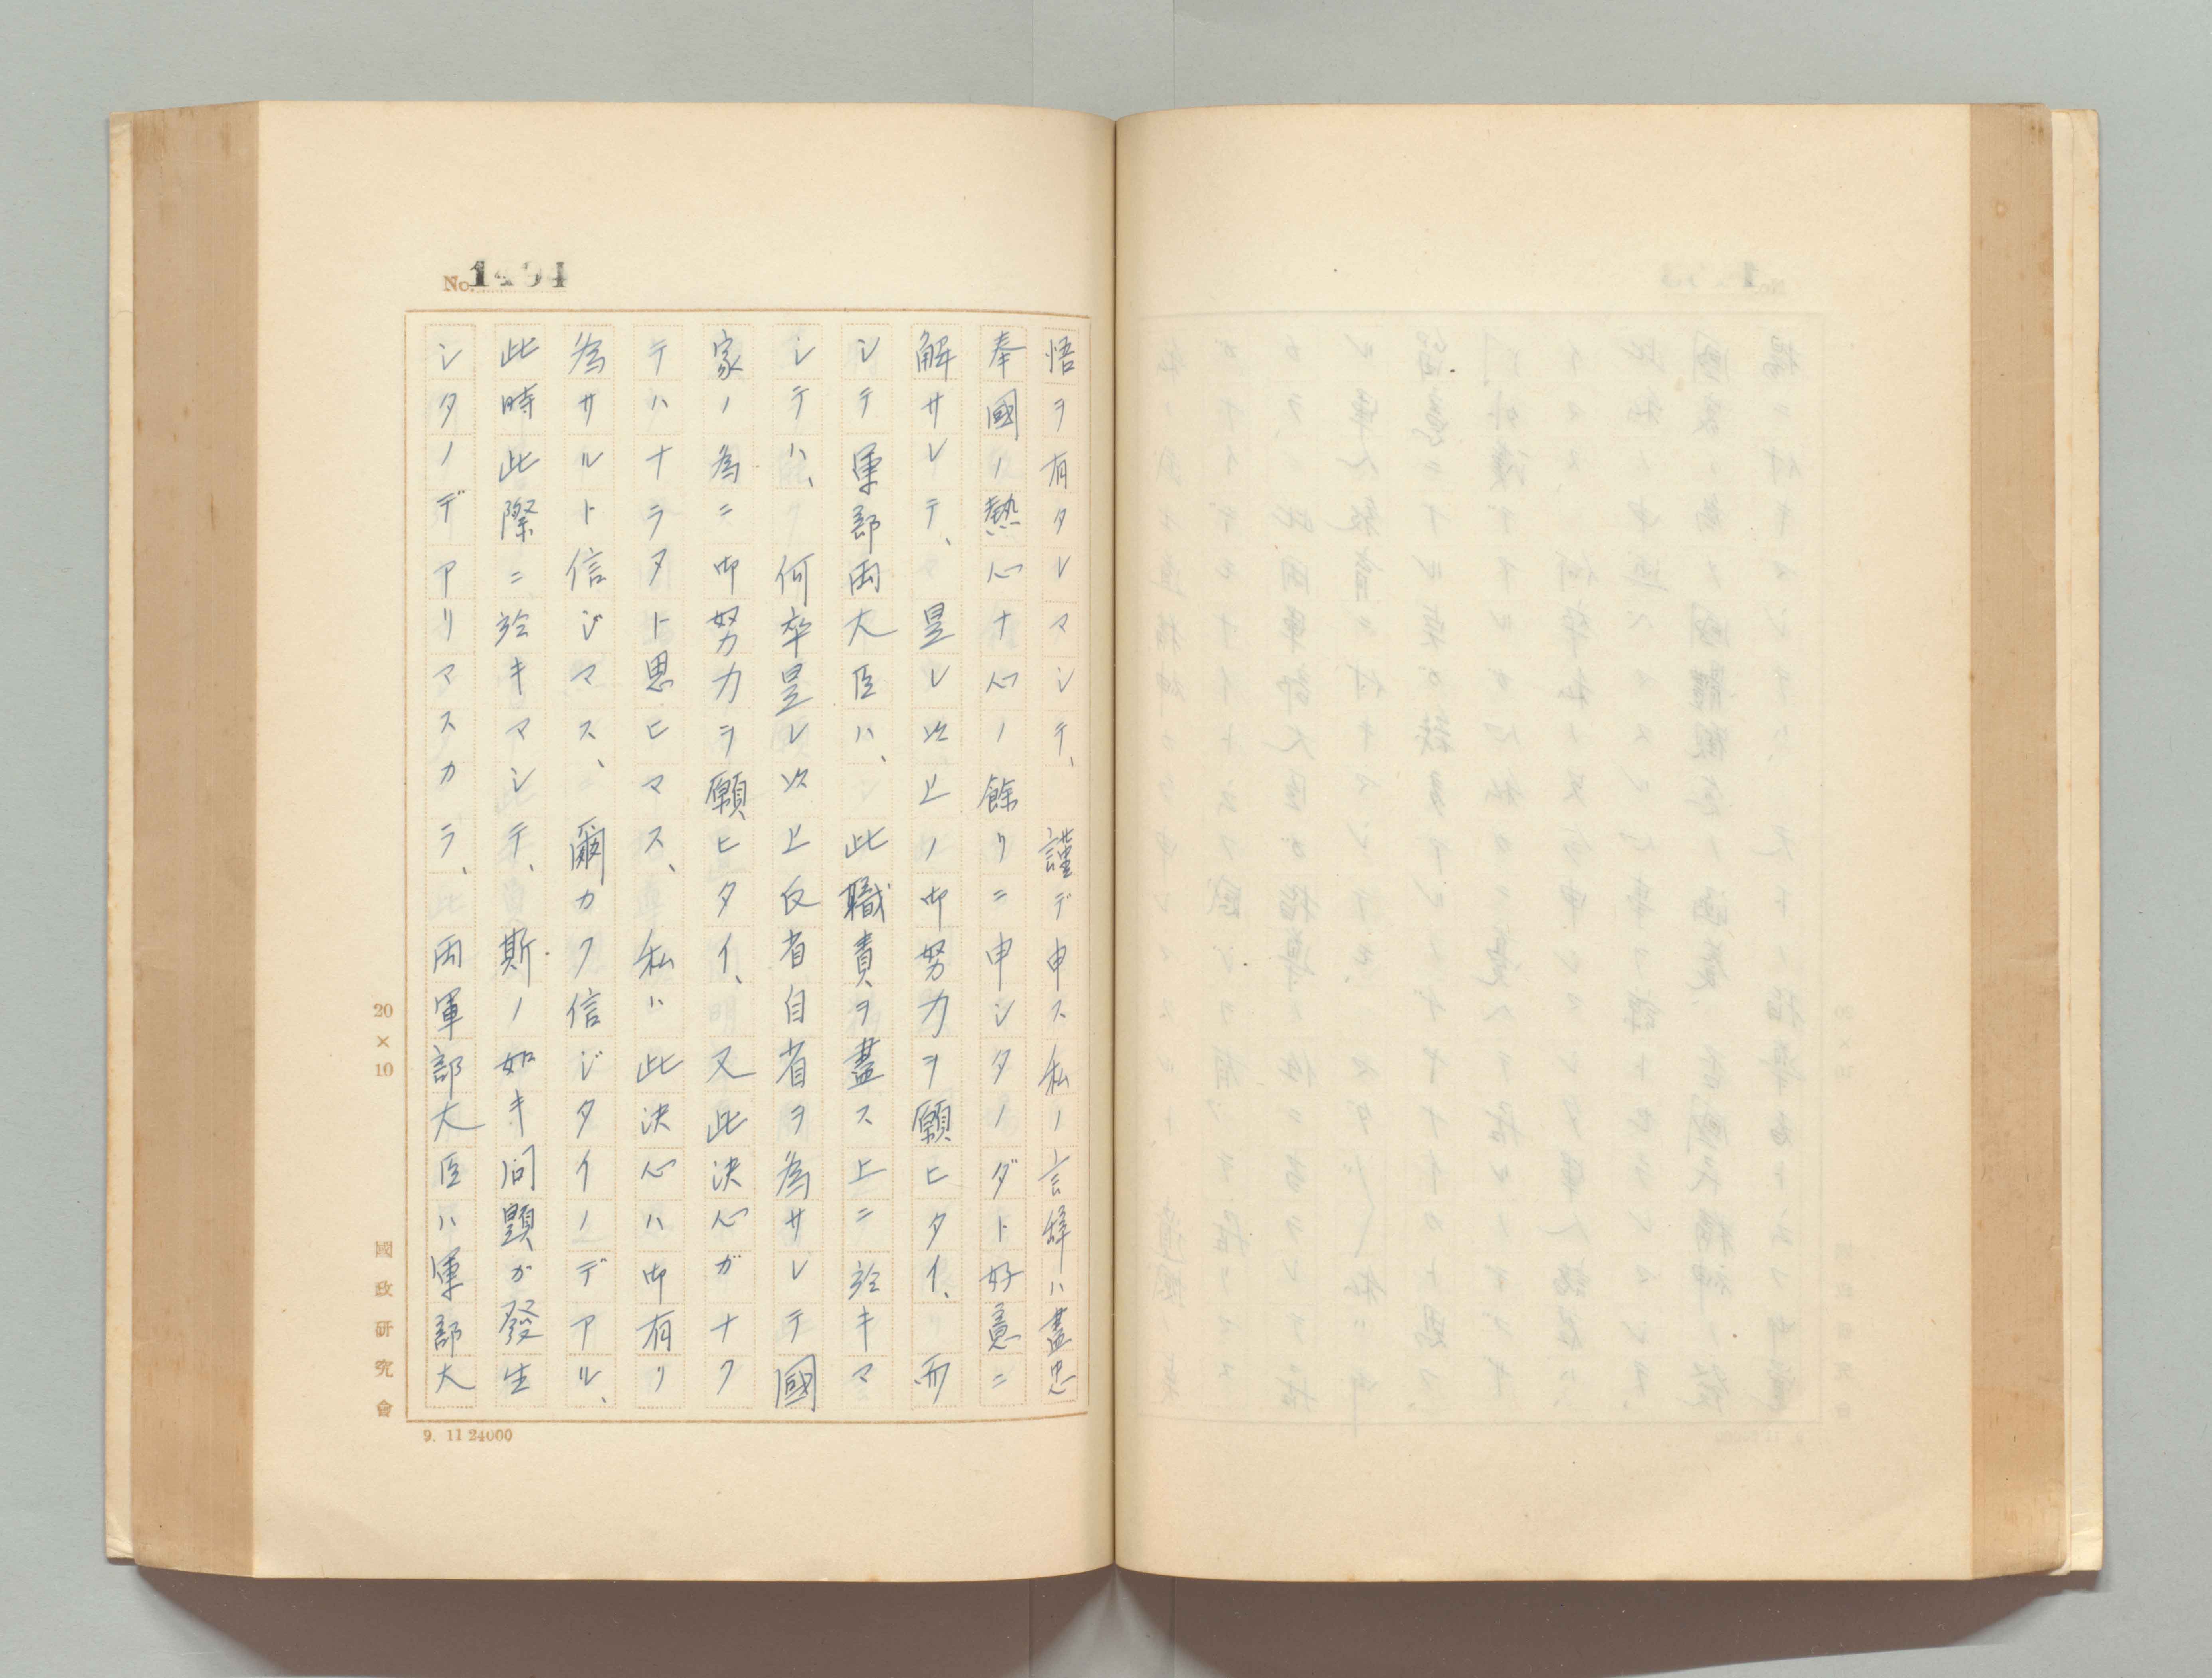 No. 1494
悟ヲ有タレマシテ、謹デ申ス私ノ言辞ハ盡忠
奉國ノ熱心ナ心ノ餘リニ申シタノダト好意ニ
解サレテ、是レ以上ノ御努力ヲ願ヒタイ、而
シテ軍部両大臣ハ、此職責ヲ盡ス上ニ於キマ
シテハ、何卒是レ以上反省自省ヲ為サレテ國
家ノ為ニ御努力ヲ願ヒタイ、又此決心ガナク
テハナラヌト思ヒマス、私ハ此決心ハ御有リ
為サルト信ジマス、爾カク信ジタイノデアル、
此時此際ニ於キマシテ、斯ノ如キ問題ガ發生
シタノデアリマスカラ、両軍部大臣ハ軍部大
20×10
國政研究會
9. 11 24000